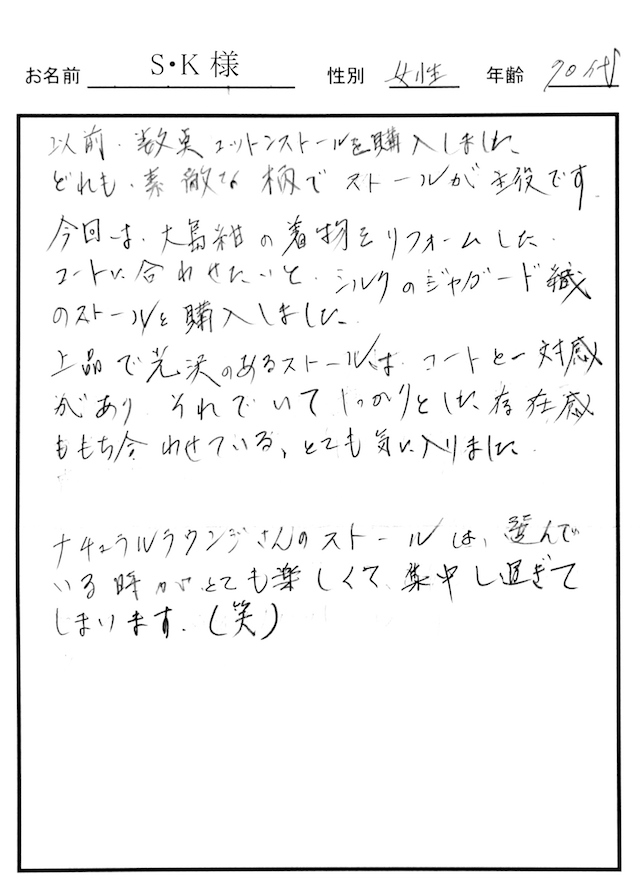 お名前 S・K 様 性別 女性 年齢 70代
以前、数点コットンストールを購入しました
どれも、素敵な柄でストールが主役です
今回は、大島紬の着物をリフォームした
コートに合わせたいと、シルクのジャガード織
のストールを購入しました。
上品で光沢のあるストールは、コートと一対感
があり、それでいてしっかりとした存在感
ももち合わせている、とても気に入りました。
ナチュラルラウンジさんのストールは、選んで
いる時がとても楽しくて、集中し過ぎて
しまります。(笑)